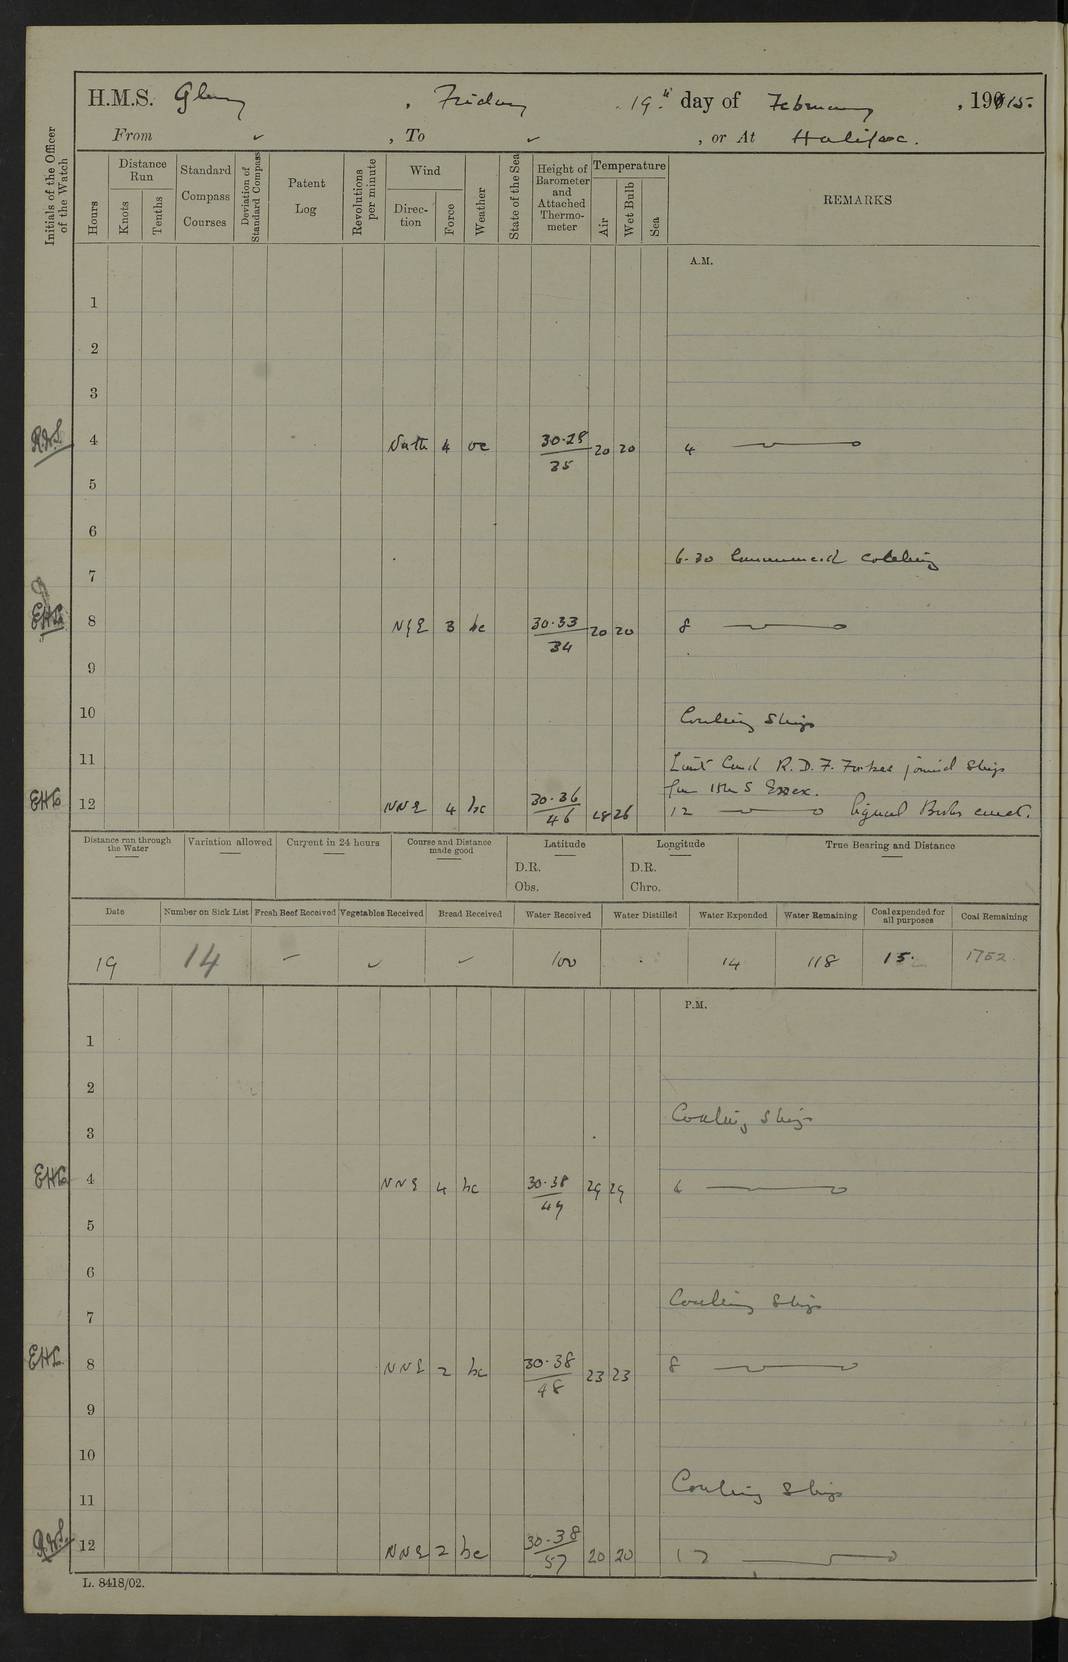 H.M.S. Glory , Friday . 19th day of February , 1915.
From ✓ , To ✓ , or At Halifax.
Initials of the Officer of the Watch
Hours
Distance Run
Knots
Tenths
Standard Compass Courses
Deviation of Standard Compass
Patent Log
Revolutions per minute
Wind
Direction
Force
Weather
State of the Sea
Height of Barometer and Attached Thermometer
Temperature
Air
Wet Bulb
Sea
REMARKS
A.M.
1
2
3
4 North 4 oc 30·28/35 20 20 4
5
6
6.30 Commenced Coaling
7
8 N&E 3 bc 30·33/34 20 20 8
9
10 Coaling Ship
11 Lieut Comd R.D.F. Forbes joined Ship
fm HMS Essex.
EHL 12 NNE 4 bc 30·36/46 28 26 12 Signal Books correct.
Distance run through the Water
Variation allowed
Current in 24 hours
Course and Distance made good
Latitude
D.R.
Obs.
Longitude
D.R.
Chro.
True Bearing and Distance
Date Number on Sick List Fresh Beef Received Vegetables Received Bread Received Water Received Water Distilled Water Expended Water Remaining Coal expended for all purposes Coal Remaining
19 14 – ✓ ✓ 100 . 14 118 15. 1752
P.M.
1
2
Coaling Ship
3
EHL 4 NNE 4 bc 30·38/49 29 29 4
5
6
Coaling Ship
7
EHL 8 NNE 2 bc 30·38/48 23 23 8
9
10
Coaling Ship
11
12 NNE 2 bc 30·38/57 20 20 12
L. 8418/02.